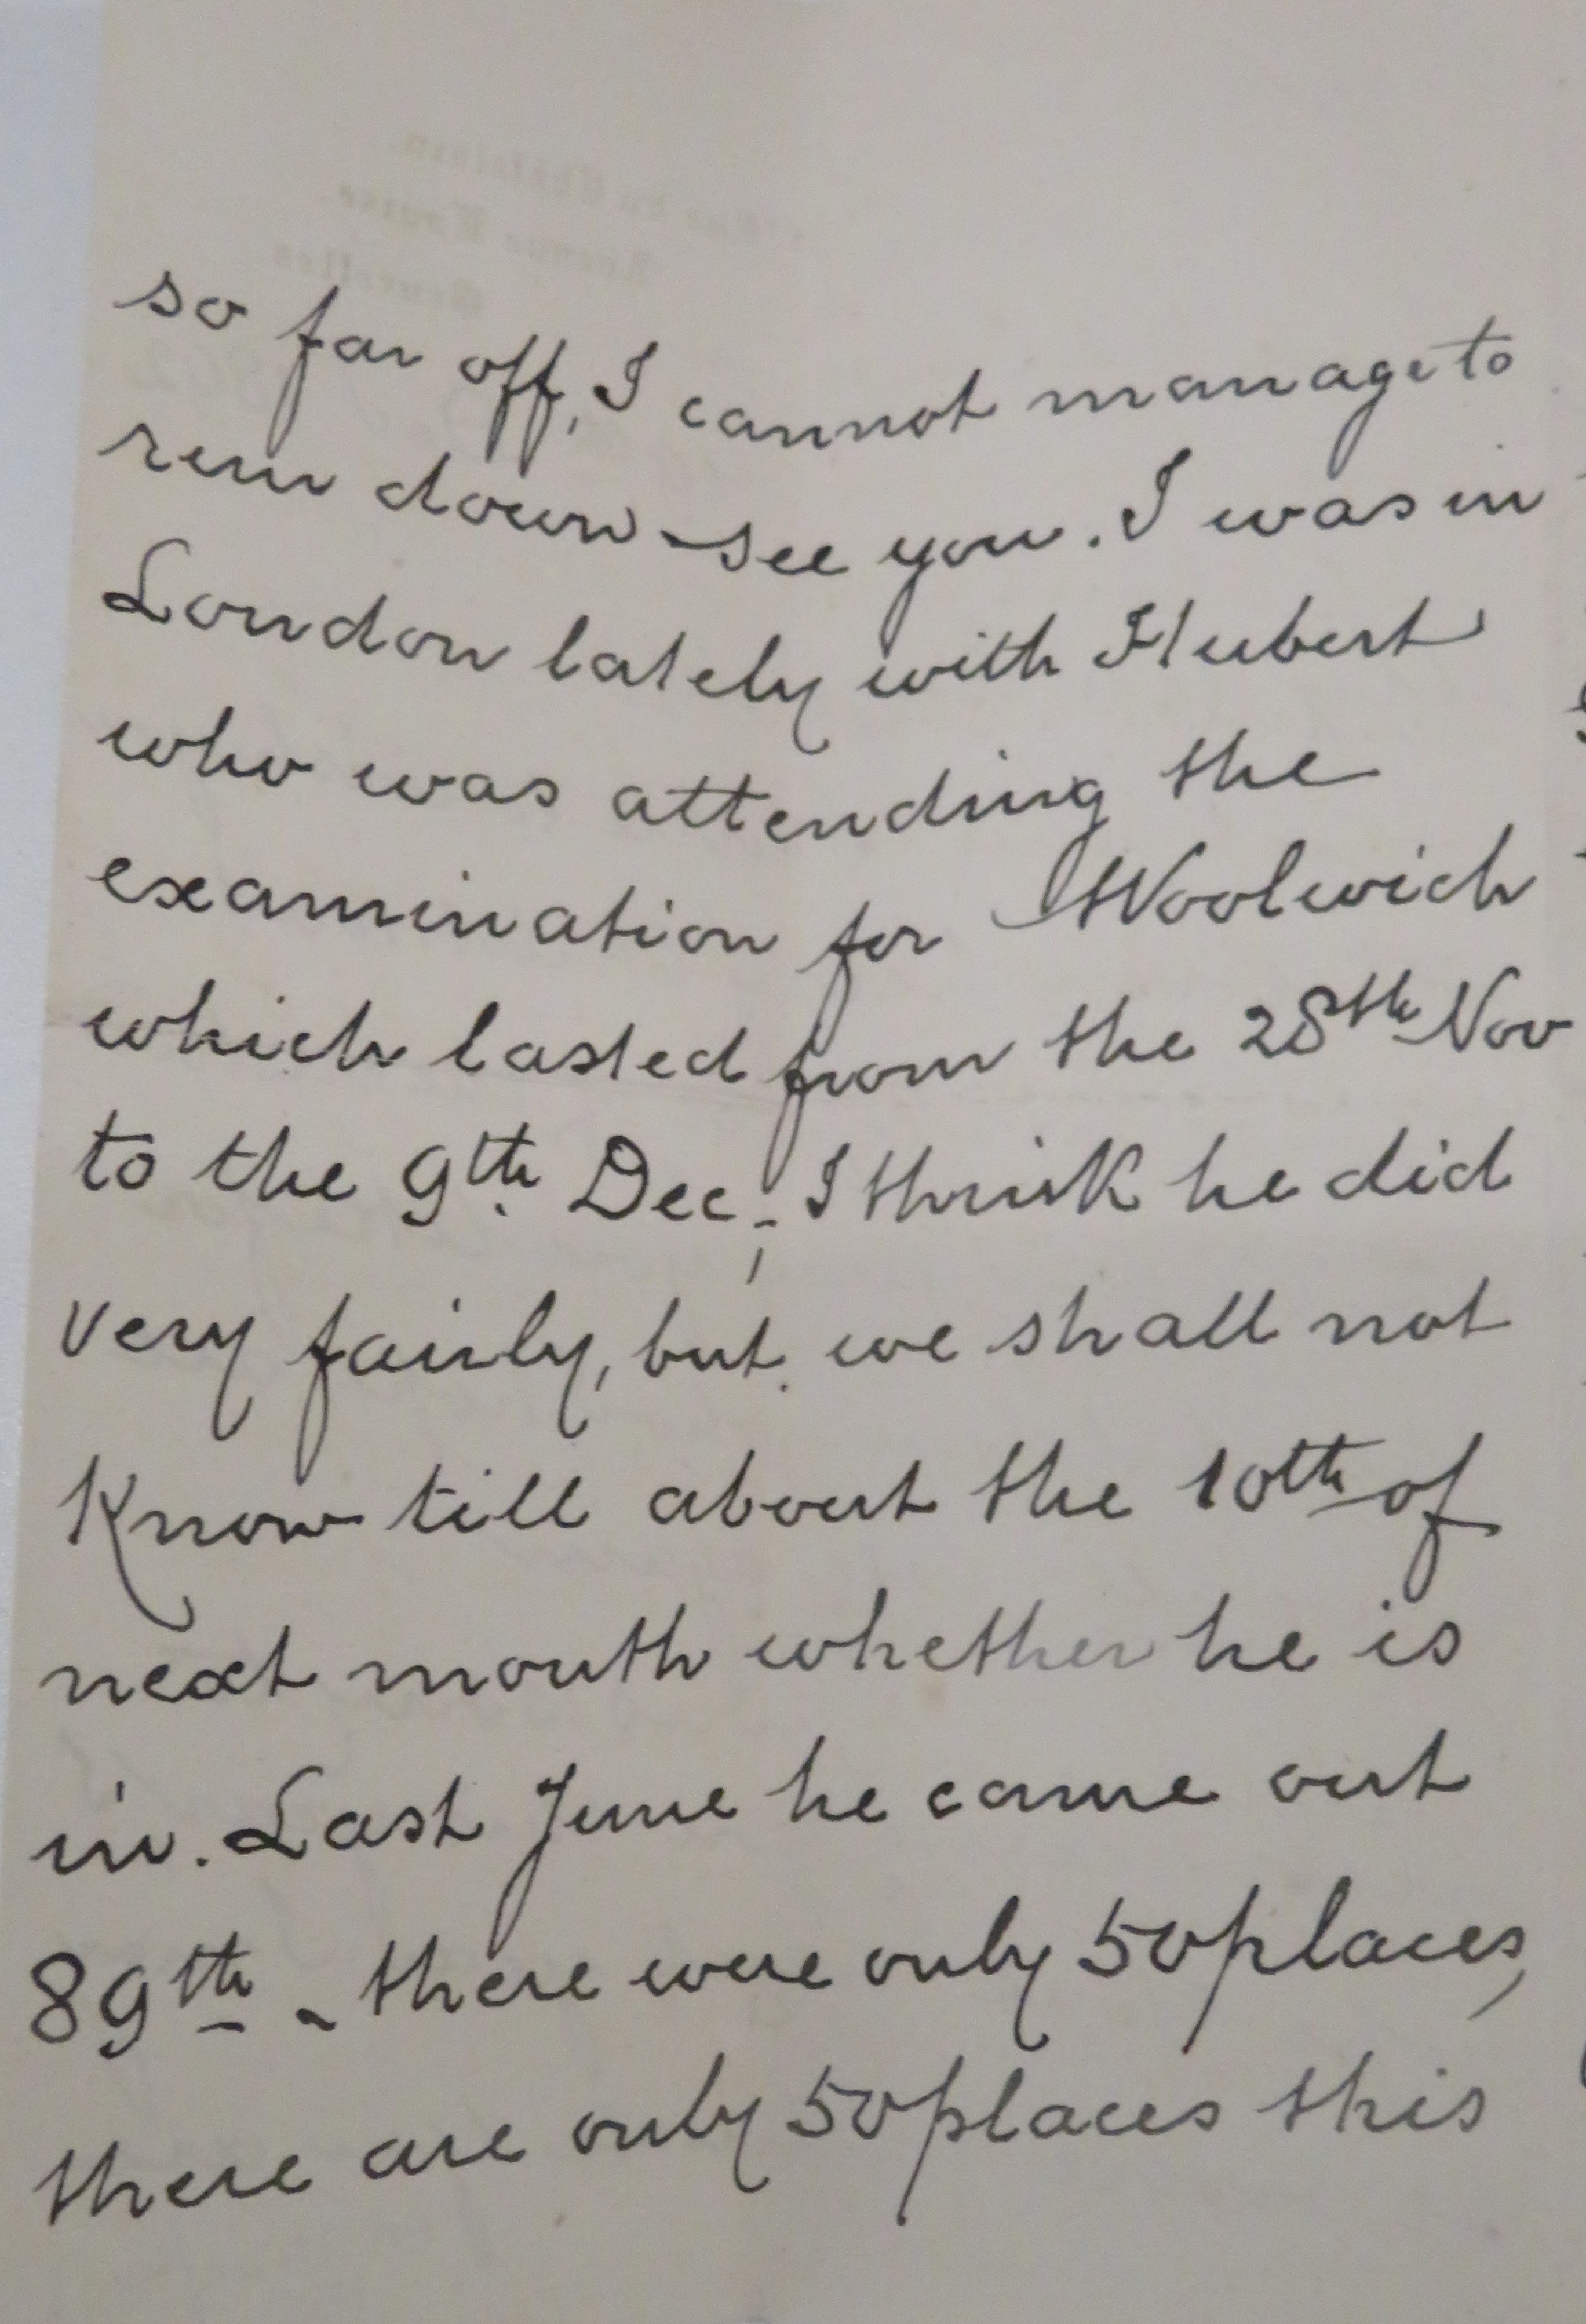 so far off, I cannot manage to
run down - see you. I was in
London lately with Hubert
who was attending the
examination for Woolwich
which lasted from the 28th Nov
to the 9th. Dec; I think he did
very fairly, but we shall not
Know till about the 10th of
next month whether he is
in. Last June he came out
89th - there were only 50 places,
there are only 50 places this